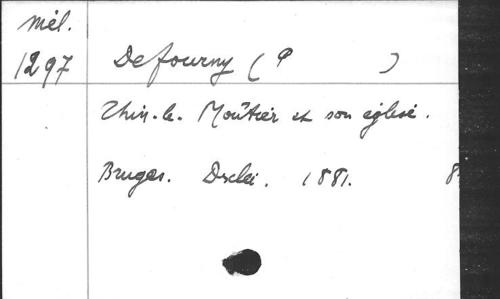 Mél.
1297 Defourny (P )
Thin-le-Moûtier et son église.
Bruges. Desclée. 1881. 8